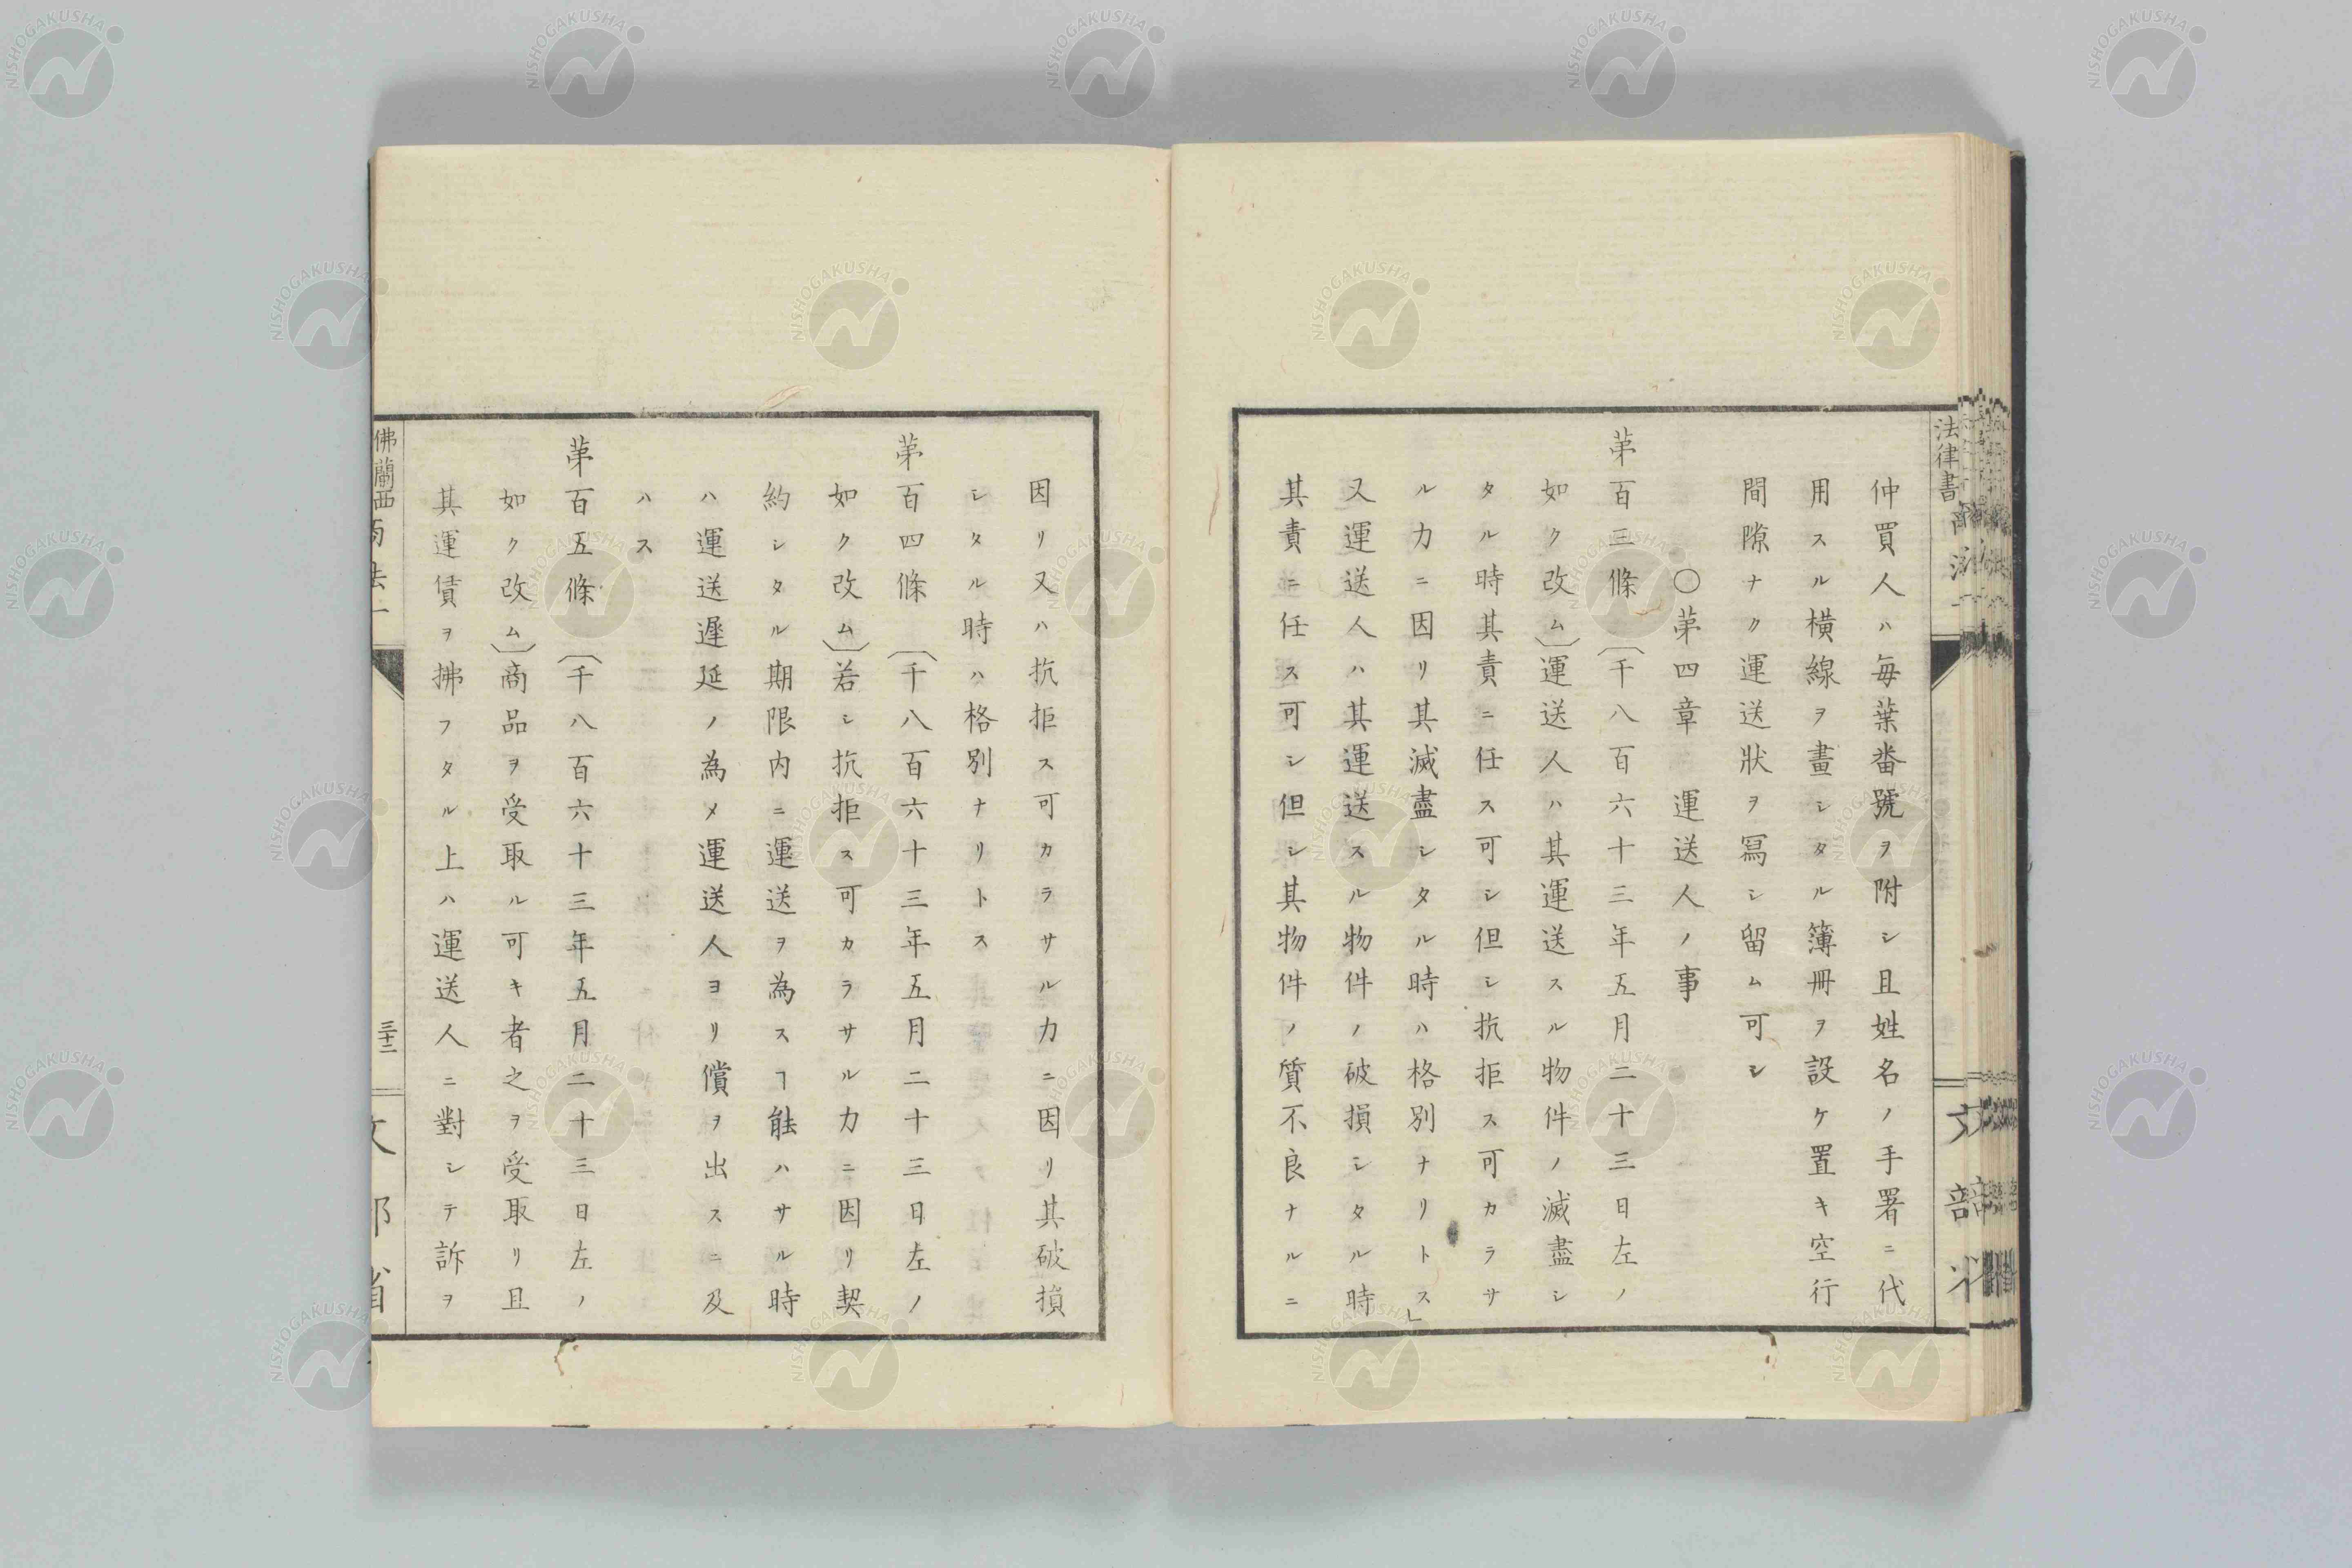 仲買人ハ毎葉畨號ヲ附シ且姓名ノ手署ニ代
用スル横線ヲ畫シタル簿冊ヲ設ケ置キ空行
間隙ナク運送狀ヲ寫シ留ム可シ
〇苐四章 運送人ノ事
苐百三條〔千八百六十三年五月二十三日左ノ
如ク改ム〕運送人ハ其運送スル物件ノ滅盡シ
タル時其責ニ任ス可シ但シ抗拒ス可カラサ
ル力ニ因リ其滅盡シタル時ハ格別ナリトス」
又運送人ハ其運送スル物件ノ破損シタル時
其責ニ任ス可シ但シ其物件ノ質不良ナルニ
因リ又ハ抗拒ス可カラサル力ニ因リ其破損
シタル時ハ格別ナリトス
苐百四條〔千八百六十三年五月二十三日左ノ
如ク改ム〕若シ抗拒ス可カラサル力ニ因リ契
約シタル期限内ニ運送ヲ為スヿ能ハサル時
ハ運送遲延ノ為メ運送人ヨリ償ヲ出スニ及
ハス
苐百五條〔千八百六十三年五月二十三日左ノ
如ク改ム〕商品ヲ受取ル可キ者之ヲ受取リ且
其運賃ヲ拂フタル上ハ運送人ニ對シテ訴ヲ
法律書
佛蘭西商法一
三十二
文部省
NISHOGAKUSHA